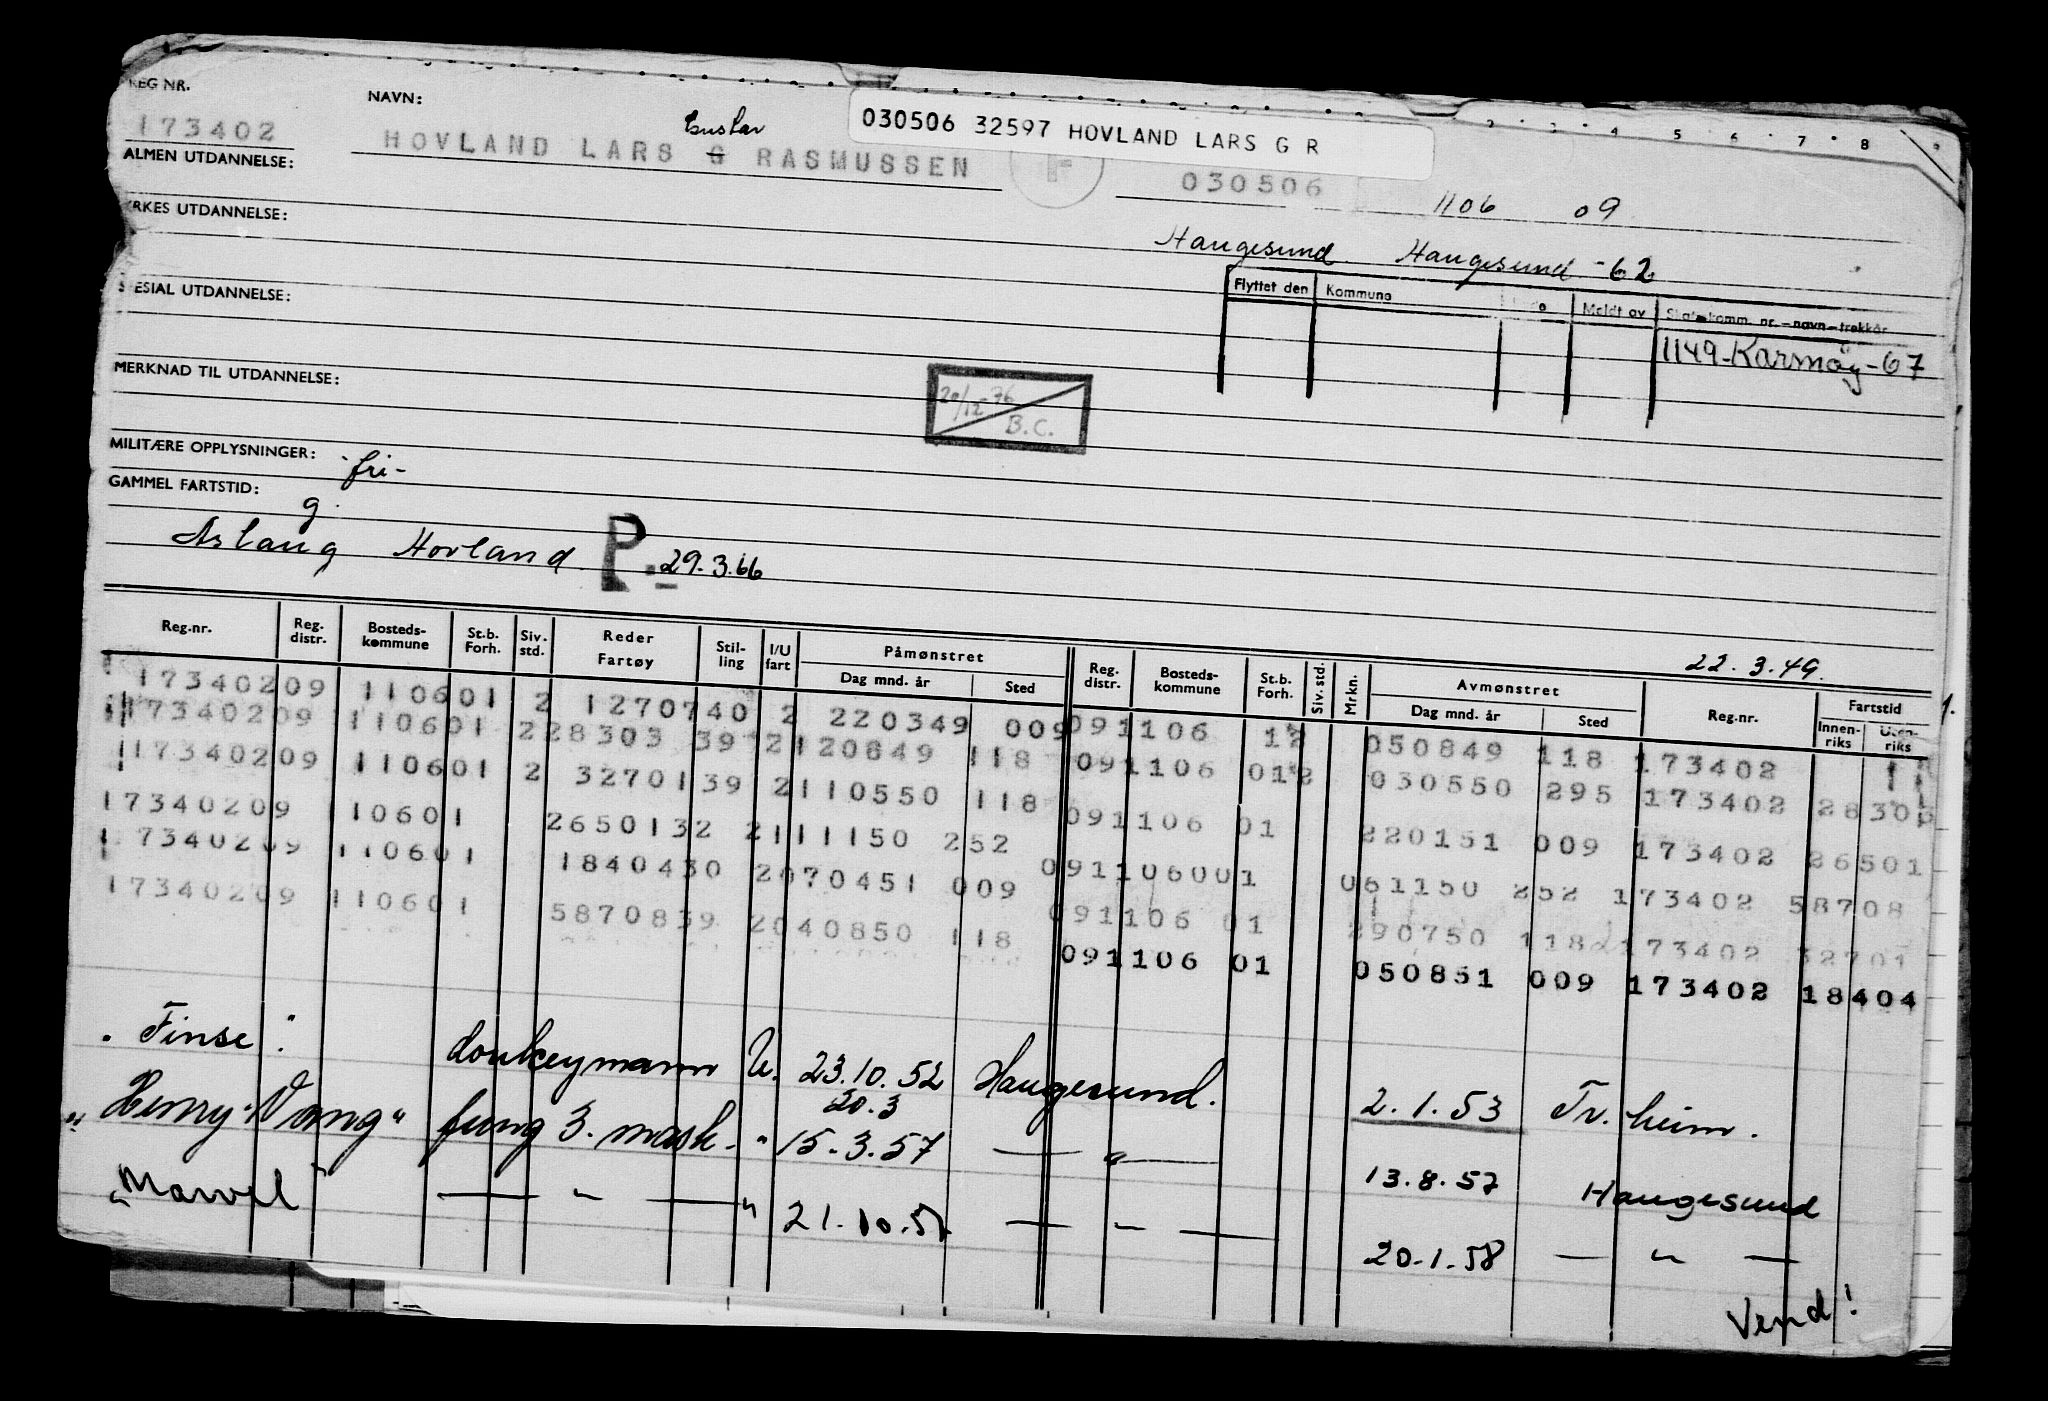 REG NR. NAVN:
030506 32597 HOVLAND LARS G R
2 3 4 5 6 7 8 9
173402 HOVLAND LARS G RASMUSSEN F 030506 1106 09
Gustav
ALMEN UTDANNELSE:
YRKES UTDANNELSE:
Haugesund. Haugesund -62
SPESIAL UTDANNELSE:
Flyttet den Kommune Meldt av Skattekomm. nr. - navn - trekkår
1149-Karmøy-67
MERKNAD TIL UTDANNELSE:
20/12-76 B.C.
MILITÆRE OPPLYSNINGER: fri-
GAMMEL FARTSTID:
g.
Aslaug Hovland P. 29.3.66
22.3.49.
Reg.nr. Reg. distr. Bosteds-kommune St.b. Forh. Siv. std. Reder Fartøy Stil-ling I/U fart Påmønstret Dag mnd. år Sted Reg. distr. Bosteds-kommune St.b. Forh. Siv. std. Mrkn. Avmønstret Dag mnd. år Sted Reg.nr. Fartstid Innen-riks Uten-riks
17340209 110601 2 1270740 2 220349 009
17340209 110601 228303 39 2120849 118 091106 12 050849 118 173402
17340209 110601 2 3270139 2110550 118 091106 012 030550 295 173402 28303
17340209 110601 2650132 2111150 252 091106 01 220151 009 173402 26501
17340209 110601 1840430 2070451 009 091106001 061150 252 173402 58708
17340209 110601 5870839 2040850 118 091106 01 290750 118 173402 32701
091106 01 050851 009 173402 18404
"Finse". donkeymann U. 23.10.52 Haugesund. 2.1.53 Tr.heim.
20.3
"Henry Wang" fung 3. mask. " 15.3.57 — " — 13.8.57 Haugesund
"Marvel" — " — " 21.10.57 — " — 20.1.58 — " —
Vend!